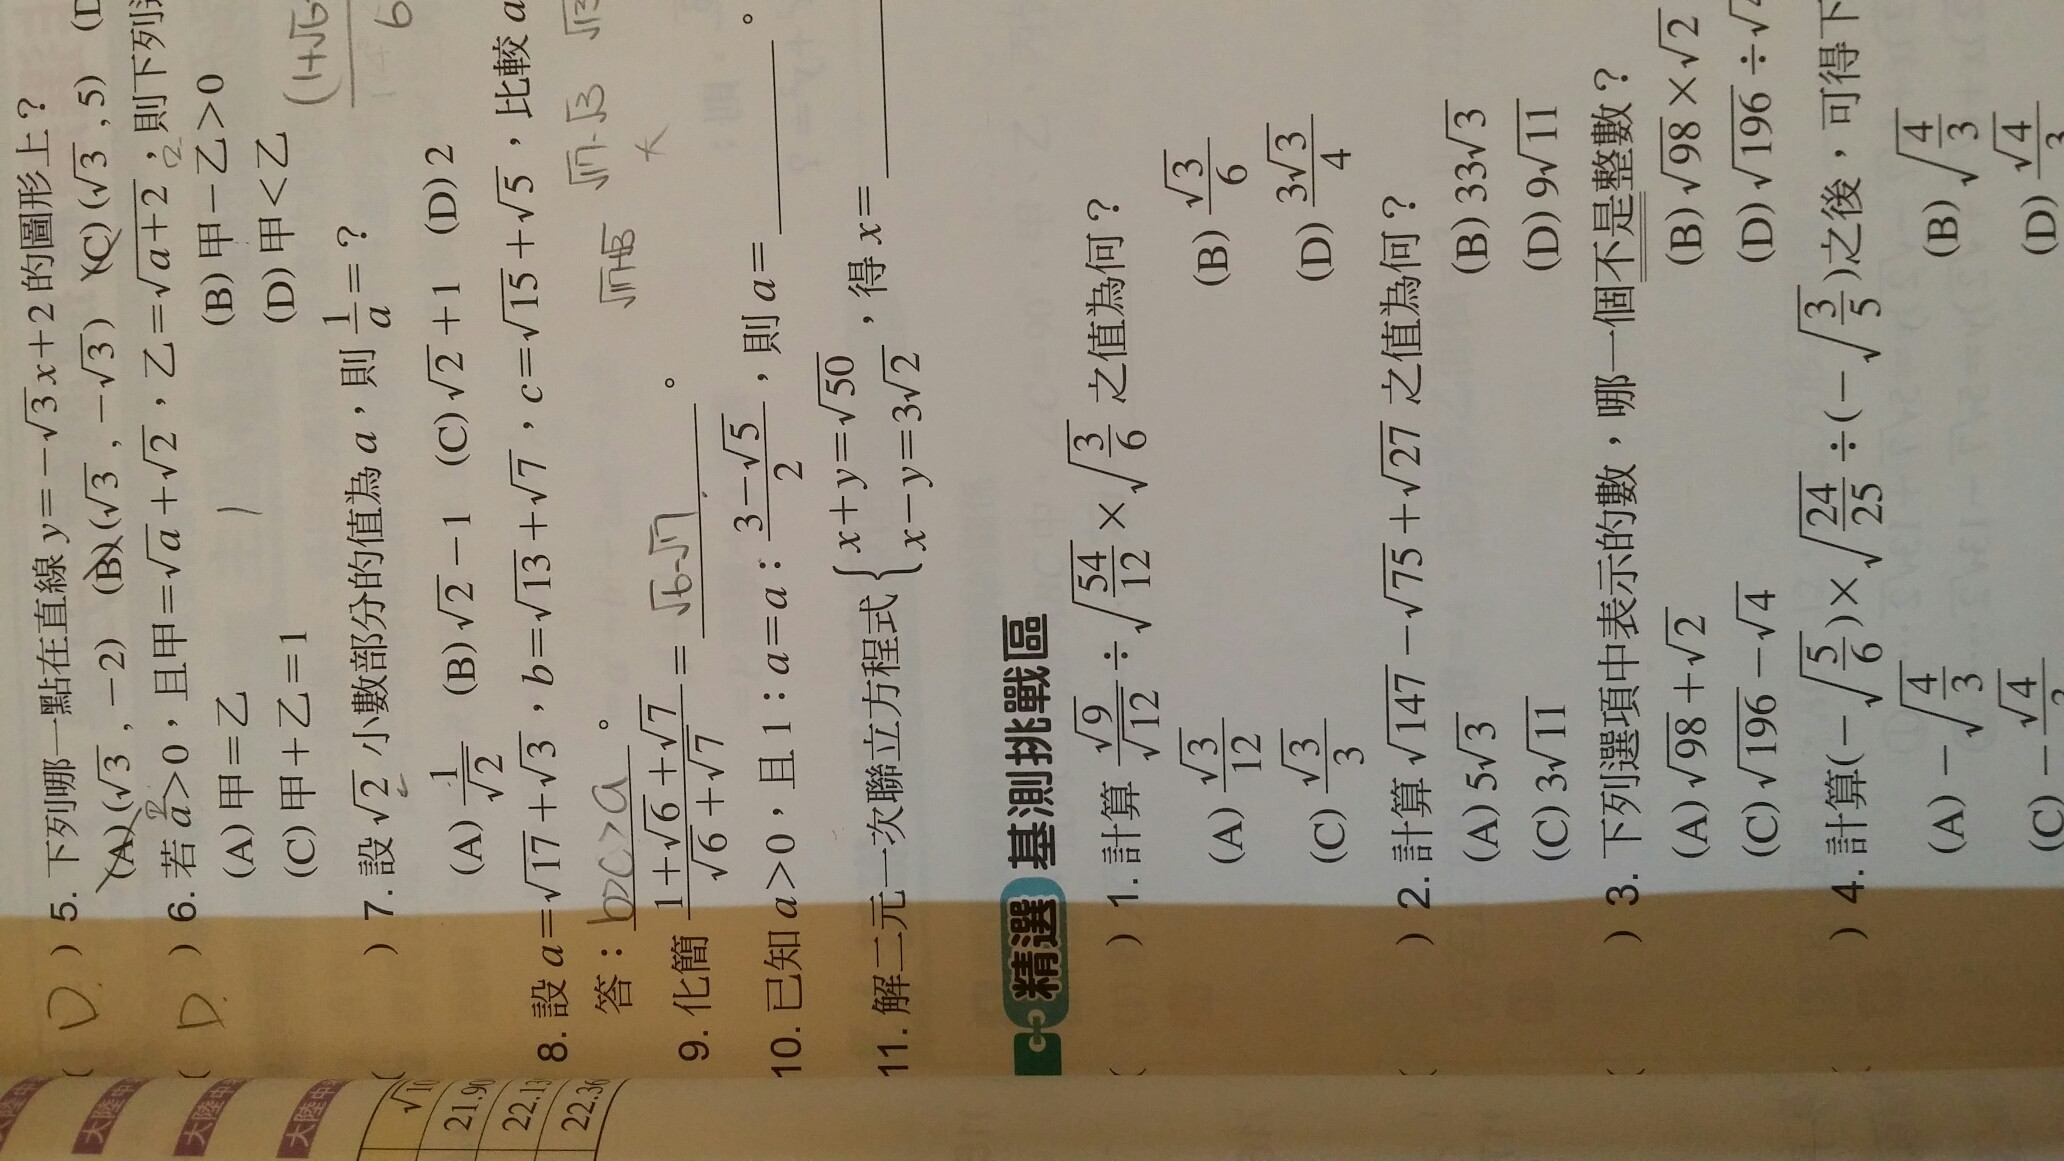 ( D ) 5. 下列哪一點在直線 y=-√3x+2 的圖形上？
(A)(√3,-2) (B)(√3,-√3) (C)(√3,5) (D
( D ) 6. 若 a>0，且甲=√a+√2，乙=√(a+2)，則下列
(A)甲=乙 (B)甲-乙>0
(C)甲+乙=1 (D)甲<乙
( ) 7. 設 √2 小數部分的值為 a，則 1/a=？
(A) 1/√2 (B)√2-1 (C)√2+1 (D)2
8. 設 a=√17+√3，b=√13+√7，c=√15+√5，比較 a
答：b>c>a。
9. 化簡 (1+√6+√7)/(√6+√7)= √6-√7 。
10. 已知 a>0，且 1：a=a：(3-√5)/2，則 a= 。
11. 解二元一次聯立方程式 { x+y=√50
x-y=3√2 ，得 x=
精選 基測挑戰區
( ) 1. 計算 √9/√12 ÷ √(54/12) × √(3/6) 之值為何？
(A) √3/12 (B) √3/6
(C) √3/3 (D) 3√3/4
( ) 2. 計算 √147-√75+√27 之值為何？
(A) 5√3 (B) 33√3
(C) 3√11 (D) 9√11
( ) 3. 下列選項中表示的數，哪一個不是整數？
(A)√98+√2 (B)√98×√2
(C)√196-√4 (D)√196÷√4
( ) 4. 計算(-√(5/6))×√(24/25)÷(-√(3/5))之後，可得下
(A) -√(4/3) (B) √(4/3)
(C) -√4/3 (D) √4/3
大陸中
大陸中
大陸中
√10
21.90
22.13
22.36